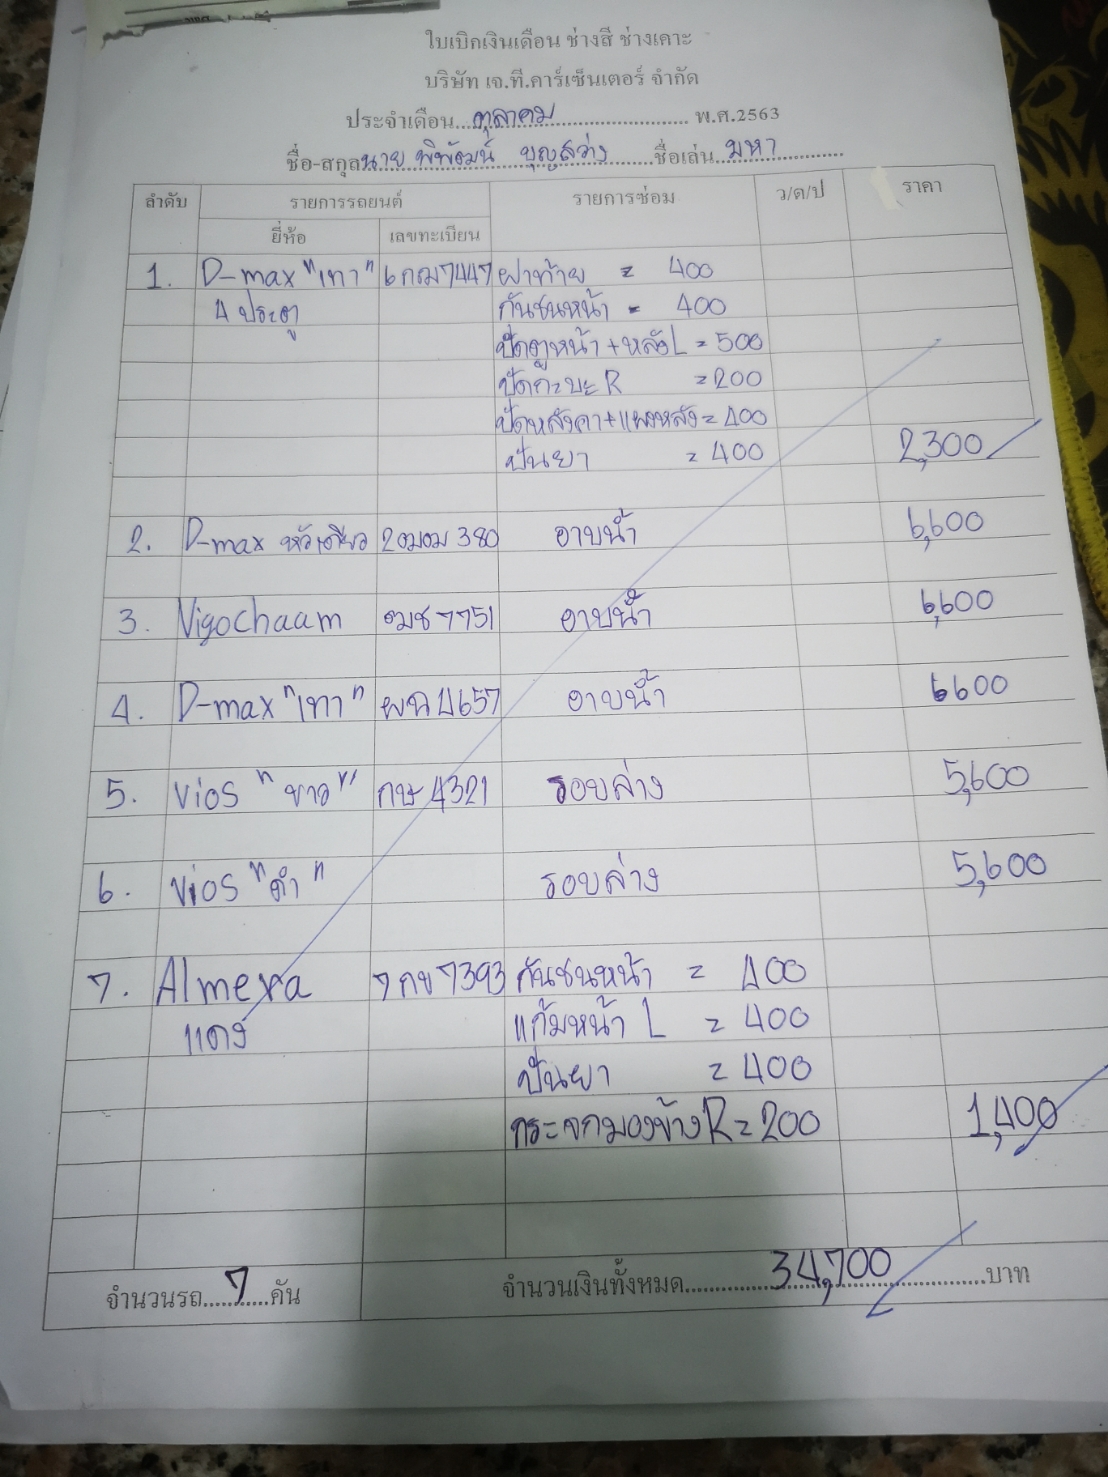 ใบเบิกเงินเดือน ช่างสี ช่างเคาะ
บริษัท เจ.ที.คาร์เซ็นเตอร์ จำกัด
ประจำเดือน...ตุลาคม.......................... พ.ศ.2563
ชื่อ-สกุล นาย พิพัฒน์ บุญสว่าง ชื่อเล่น มหา
ลำดับ รายการรถยนต์ รายการซ่อม ว/ด/ป ราคา
ยี่ห้อ เลขทะเบียน
1. D-max "เทา" 6กฌ7447 ฝาท้าย = 400
4 ประตู กันชนหน้า = 400
ปัดตูหน้า+หลังL = 500
ปัดกะบะ R = 200
ปัดหลังคา+แผงหลัง = 400
ปั่นยา = 400 2,300
2. D-max หัวเดียว 2ฒฒ 380 อาบน้ำ 6,600
3. Vigochaam ฒช7751 อาบน้ำ 6,600
4. D-max "เทา" ผฉ4657 อาบน้ำ 6600
5. Vios "ขาว" กษ 4321 รอบล่าง 5,600
6. Vios "ดำ" รอบล่าง 5,600
7. Almera 7กข7393 กันชนหน้า = 400
แดง แก้มหน้า L = 400
ปั่นยา = 400
กระจกมองข้าง R = 200 1,400
จำนวนรถ....7....คัน จำนวนเงินทั้งหมด...........34,700...........บาท